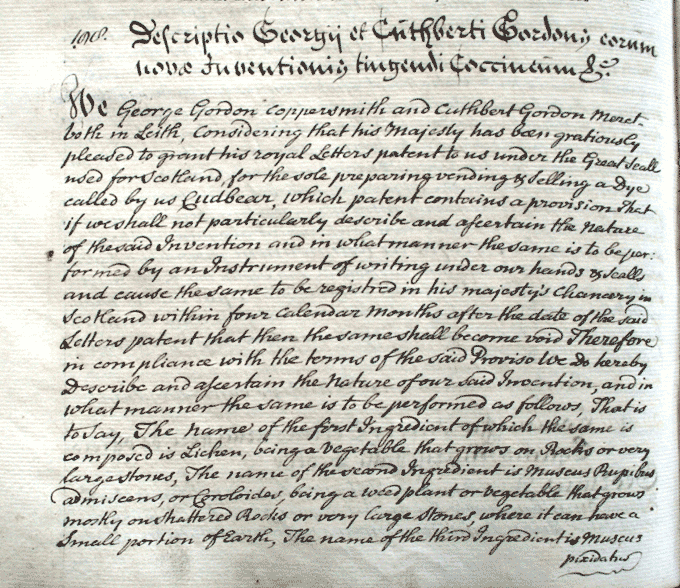 Descriptio Georgij et Cuthberti Gordons eorum
novæ Inventionis tingendi Coccineum &c.
We George Gordon Coppersmith and Cuthbert Gordon Merct
both in Leith, Considering that his Majesty has been gratiously
pleased to grant his royal Letters patent to us under the Great Seall
used for Scotland, for the sole preparing vending & Selling a Dye
called by us Cudbear, which patent contains a provision That
if we shall not particularly describe and ascertain the nature
of the said Invention and in what manner the same is to be per:
formed by an Instrument of writing under our hands & Sealls
and cause the same to be registred in his majesty's Chancery in
Scotland within four Calendar Months after the date of the said
Letters patent that then the same shall become void Therefore
in compliance with the terms of the said Proviso We do hereby
Describe and ascertain the Nature of our said Invention, and in
what manner the same is to be performed as follows, That is
to Say, The name of the first Ingredient of which the same is
composed is Lichen, being a Vegetable that grows on Rocks or very
large stones, The name of the second Ingredient is Muscus Rupibus
admiscens, or Coroloides, being a weed plant or vegetable that grows
mostly on shattered Rocks or very large Stones, where it can have a
Small portion of Earth, The name of the third Ingredient is Muscus
pixidatus